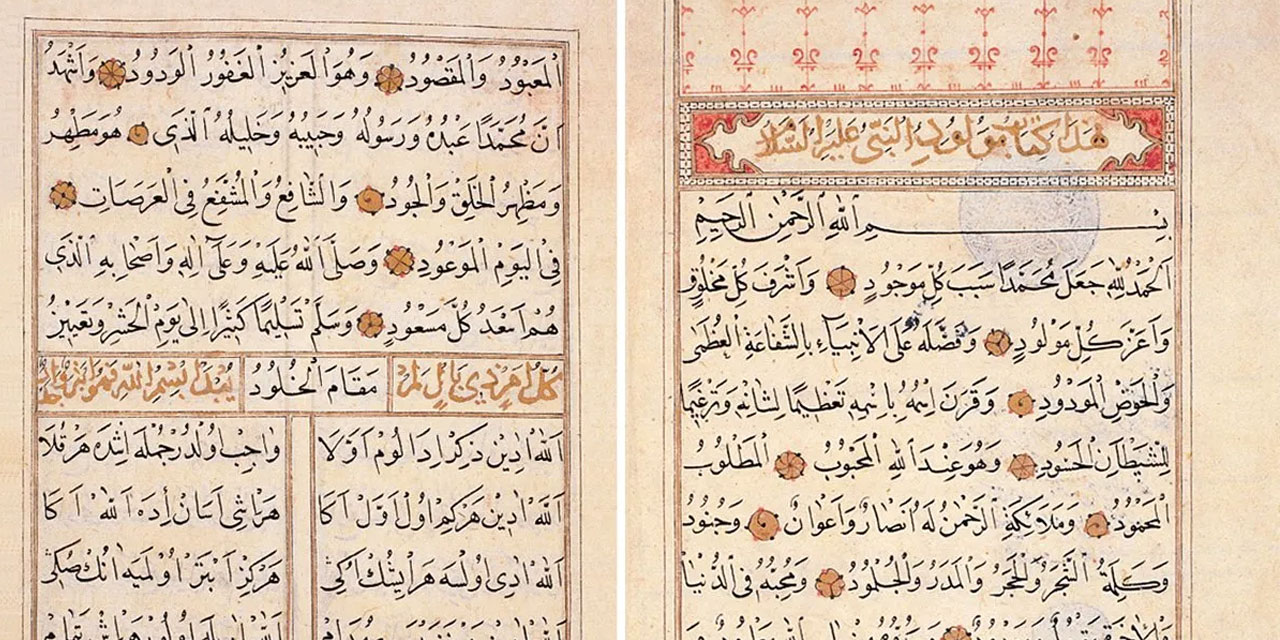 هذا كتاب مولود النبي عليه السلام
بسم الله الرحمن الرحيم
الحمد لله جعل محمدا سبب كل موجود واشرف كل مخلوق
واعز كل مولود وفضله على الانبياء بالشفاعة العظمى
والحوض المورود وقرن اسمه باسمه تعظيما لشانه وترغيما
للشيطان الحسود وهو عند الله المحبوب المطلوب
المحمود وملائكة الرحمن له انصار واعوان وجنود
وكلمة الشجر والحجر والمدر والجلمود ومحبه في الدنيا
المعبود والمقصود وهو العزيز الغفور الودود واشهد
ان محمدا عبده ورسوله وحبيبه وخليله الذي هو مطهر
ومظهر الخلق والجود والشافع والمشفع في العرصات
في اليوم الموعود وصلى الله عليه وعلى اله واصحابه الذي
هم اسعد كل مسعود وسلم تسليما كثيرا الى يوم الحشر
مقام الخلود
الله ادين ذكر ادالوم اولا واجب اولدر جمله اشده هر قلا
الله ادين هركم اول اول اكا هر اشى اسان اده الله اكا
الله ادى اولسه هر ايشك اكى هركز ابتر اولميه انك صكى